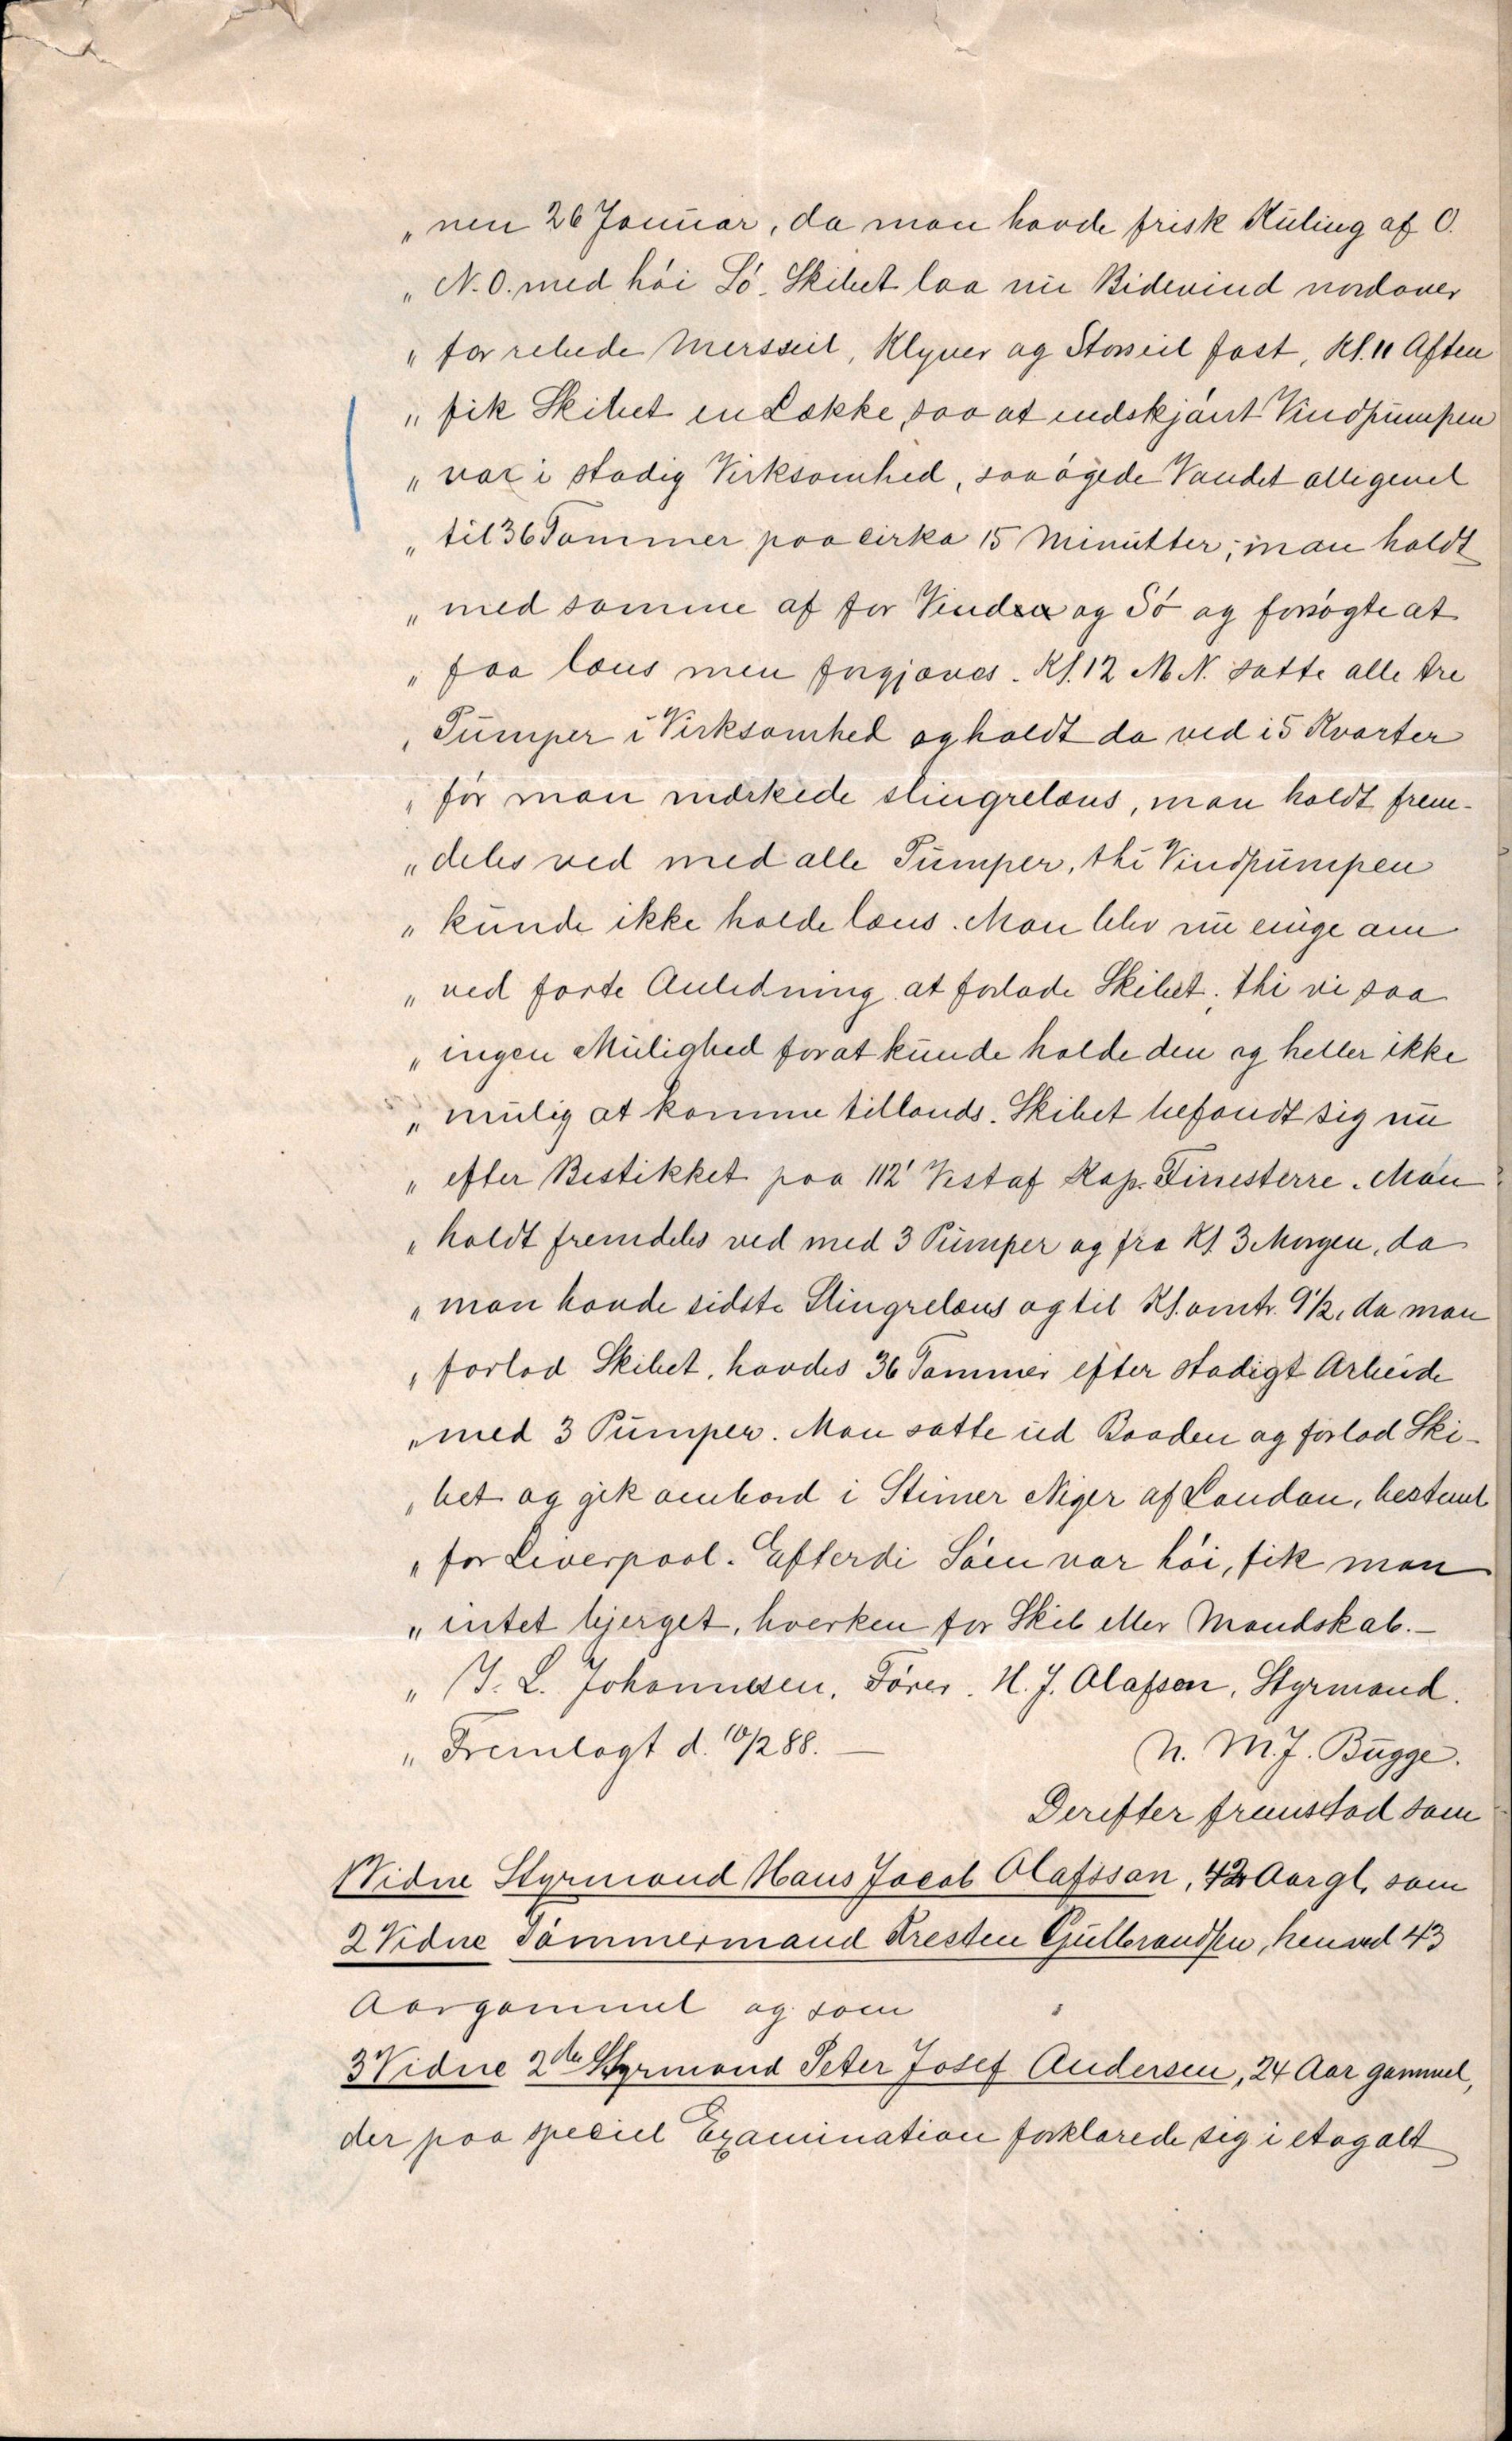 „ nen 26 Januar, da man havde frisk Kuling af O.
„ N.O. med høi Sø. Skibet laa nu Bidevind nordover
„ for rebede Mersseil, Klyver og Storseil fast, Kl. 11 Aften
„ fik Skibet en Lække, saa at endskjønt Vindpumpen
„ var i stadig Virksomhed, saa øgede Vandet alligevel
„ til 36 Tommer paa cirka 15 Minutter; man holdt
„ med samme af for Vind og Sø og forsøgte at
„ faa læns men forgjæves. Kl. 12 M.N. satte alle tre
„ Pumper i Virksomhed og holdt da ved i 5 Kvarter
„ før man mærkede slingrelæns, man holdt frem-
„ deles ved med alle Pumper, thi Vindpumpen
„ kunde ikke holde læns. Man blev nu enige om
„ ved første Anledning at forlade Skibet; thi vi saa
„ ingen Mulighed for at kunde holde den og heller ikke
„ mulig at komme tillands. Skibet befandt sig nu
„ efter Bestikket paa 112' Vest af Kap. Finesterre. Man
„ holdt fremdeles ved med 3 Pumper og fra Kl 3 Morgen, da
„ man havde sidste Slingrelæns og til Kl. omtr. 9½, da man
„ forlod Skibet, havdes 36 Tommer efter stadigt Arbeide
„ med 3 Pumper. Man satte ud Baaden og forlod Ski-
„ bet og gik ombord i Stimer Niger af London, bestemt
„ for Liverpool. Efterdi Søen var høi, fik man
„ intet bjerget, hverken for Skib eller Mandskab. —
„ J. L. Johannesen, Fører. H. J. Olafsen, Styrmand.
„ Fremlagt d. 10/2 88. — N. M. J. Bugge.
Derefter fremstod som
1 Vidne Styrmand Hans Jacob Olafsson, 42 Aar gl, som
2 Vidne Tømmermand Kresten Gulbrandsen, henved 43
Aar gammel og som
3 Vidne 2den Styrmand Peter Josef Andersen, 24 Aar gammel,
der paa speciel Examination forklarede sig i et og alt